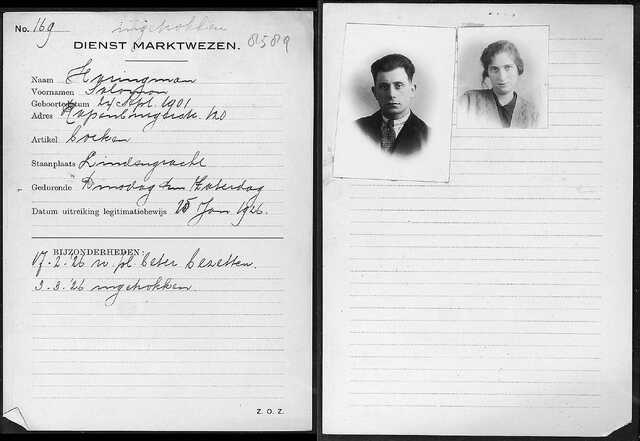 No. 169 ingetrokken
8589
DIENST MARKTWEZEN.
Naam Haringman
Voornamen Salomon
Geboortedatum 14 Apl. 1901
Adres Rapenburgerstr. 120
Artikel Boeken
Staanplaats Lindengracht
Gedurende Dinsdag t/m Zaterdag
Datum uitreiking legitimatiebewijs 15 Jan 1926.
BIJZONDERHEDEN:
17.2.'26 w. pl. beter bezetten.
3.3.'26 ingetrokken.
Z. O. Z.